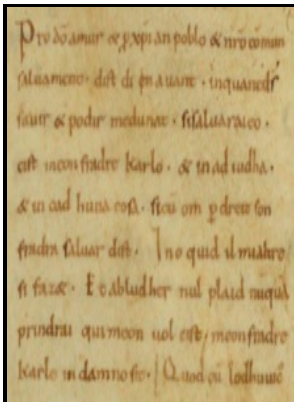 Pro dō amur & p xp̄ian poblo & nr̄o cōmun
saluament. dist di en auant. inquantd̄s
sauir & podir medunat. sisaluaraieo.
cist meonfradre Karlo. & in ad iudha.
& in cad huna cosa. sicū om p dreit son
fradra saluar dist. Ino quid il mialtre
si faz&. Et abludher nul plaid nūquā
prindrai qui meon uol cist, meonfradre
Karle in damno sit. Quod cū lodhuuic̄